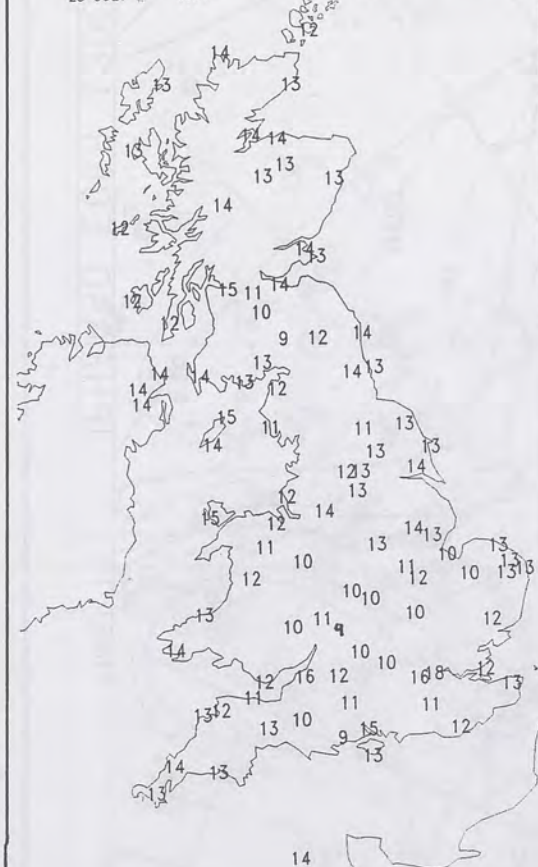 12
14
13 13
14 14
13 13 13 13
14
12
14 13
14
12 15 11
10
12 14
9 12
13 13
14 14 14 13 12
14
14
15 13
14 11 11 13
13
12 13 14
13
12
15 14
12 14 13
11 13 10 13
10 11 13
12 12 10 13 13
10 10
13 11 10 12
10 9
14 10
10
12 16 12 16 18 12 13
11 11 11
13 12
13 10 15 12
9
13
14 13
13
14